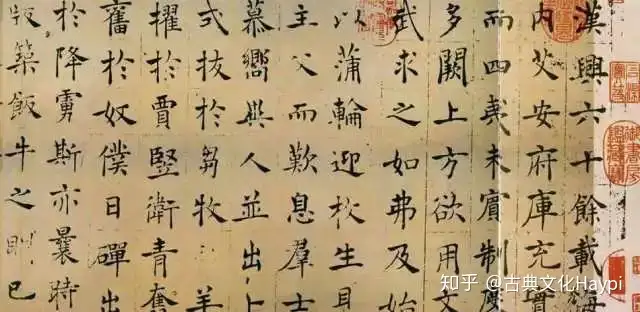 漢興六十餘載海
內艾安府庫充實
而四夷未賓制度
多闕上方欲用文
武求之如弗及始
以蒲輪迎枚生見
主父而歎息羣士
慕嚮異人並出卜
式拔於芻牧羊
擢於賈豎衛青奮
舊於奴僕日磾出
於降虜斯亦曩時
版築飯牛之明已
知乎 @古典文化Haypi